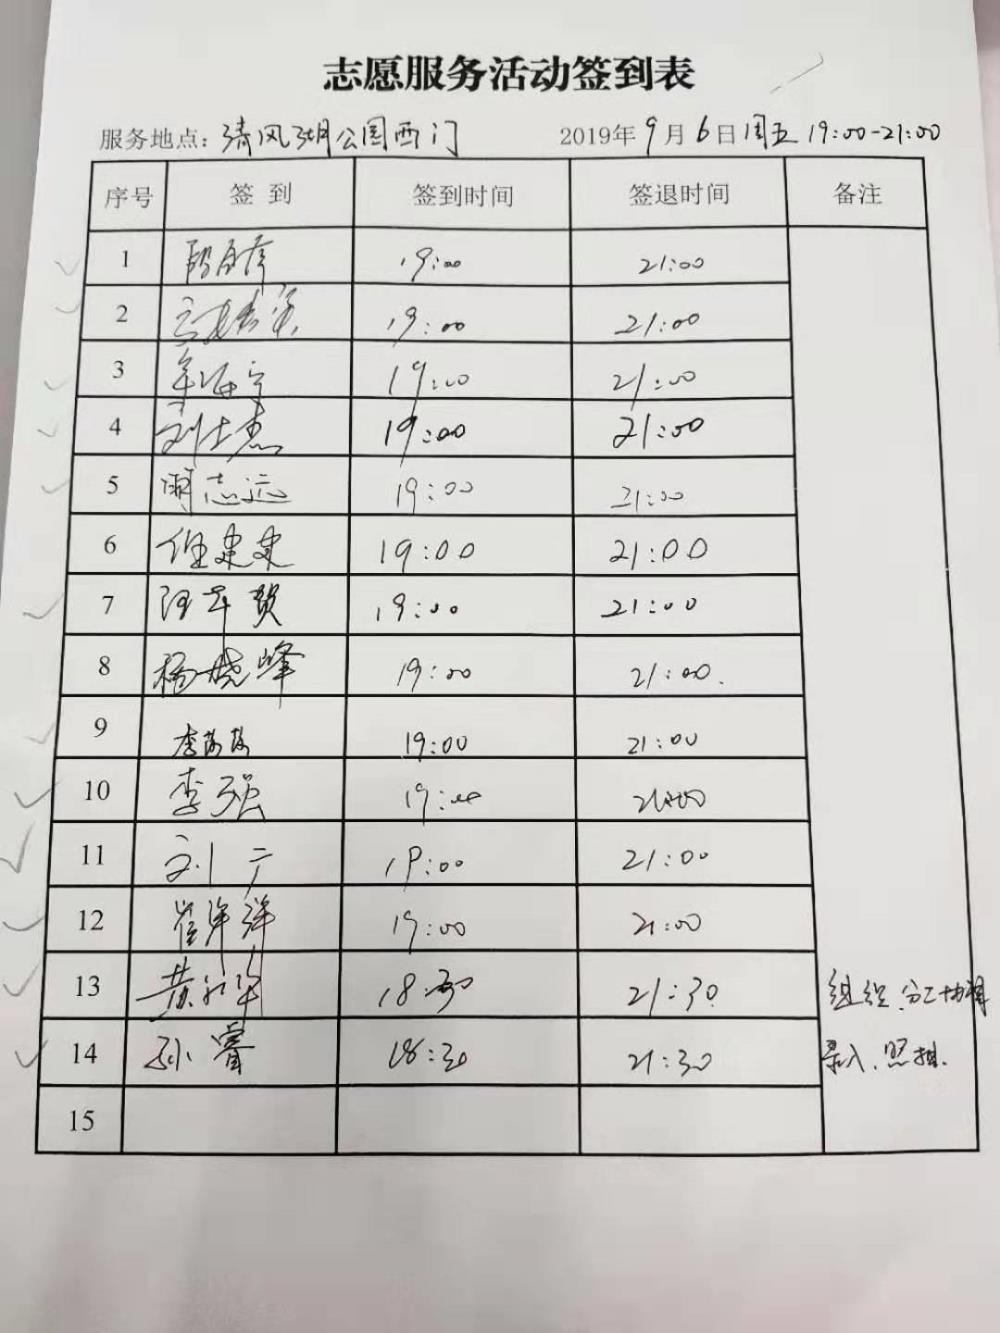 志愿服务活动签到表
服务地点：清风湖公园西门 2019年9月6日周五 19:00-21:00
序号 签到 签到时间 签退时间 备注
1 19:00 21:00
2 19:00 21:00
3 19:00 21:00
4 刘士杰 19:00 21:00
5 周志远 19:00 21:00
6 任建建 19:00 21:00
7 19:00 21:00
8 杨晓峰 19:00 21:00.
9 李 19:00 21:00
10 李强 19:00 21:00
11 刘广 19:00 21:00
12 崔洋洋 19:00 21:00
13 18:30 21:30 组织、分工协调
14 孙睿 18:30 21:30 录入、照相.
15